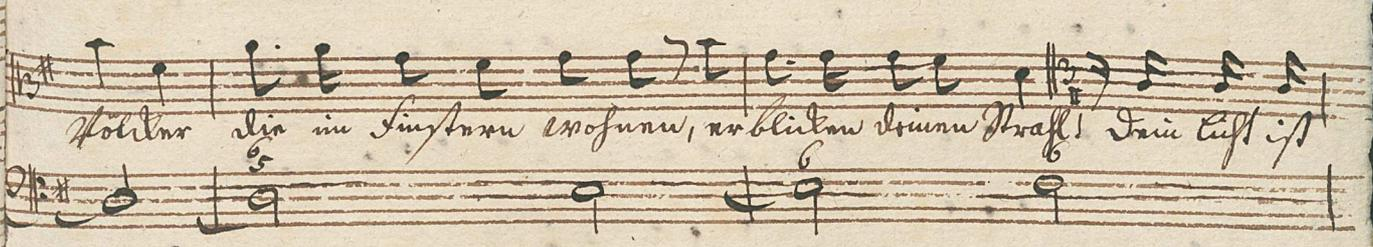 Völcker die im Finstern wohnen, erblicken deinen Strahl! Dein Licht ist
6 5 6 6